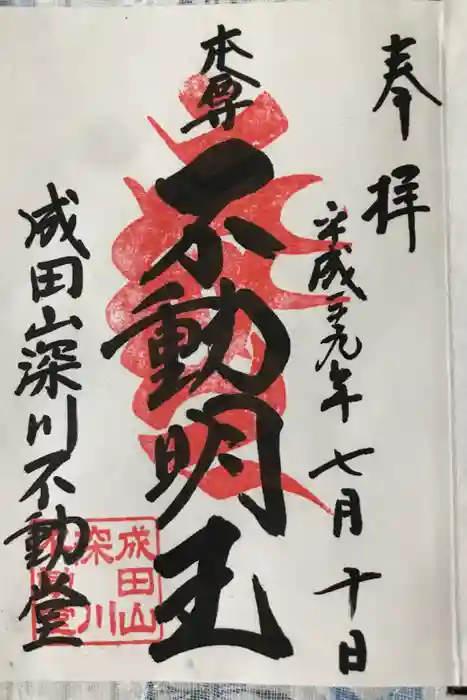 奉拝
平成二十九年七月十日
本尊
不動明王
成田山深川不動堂
成田山
深川
不動堂